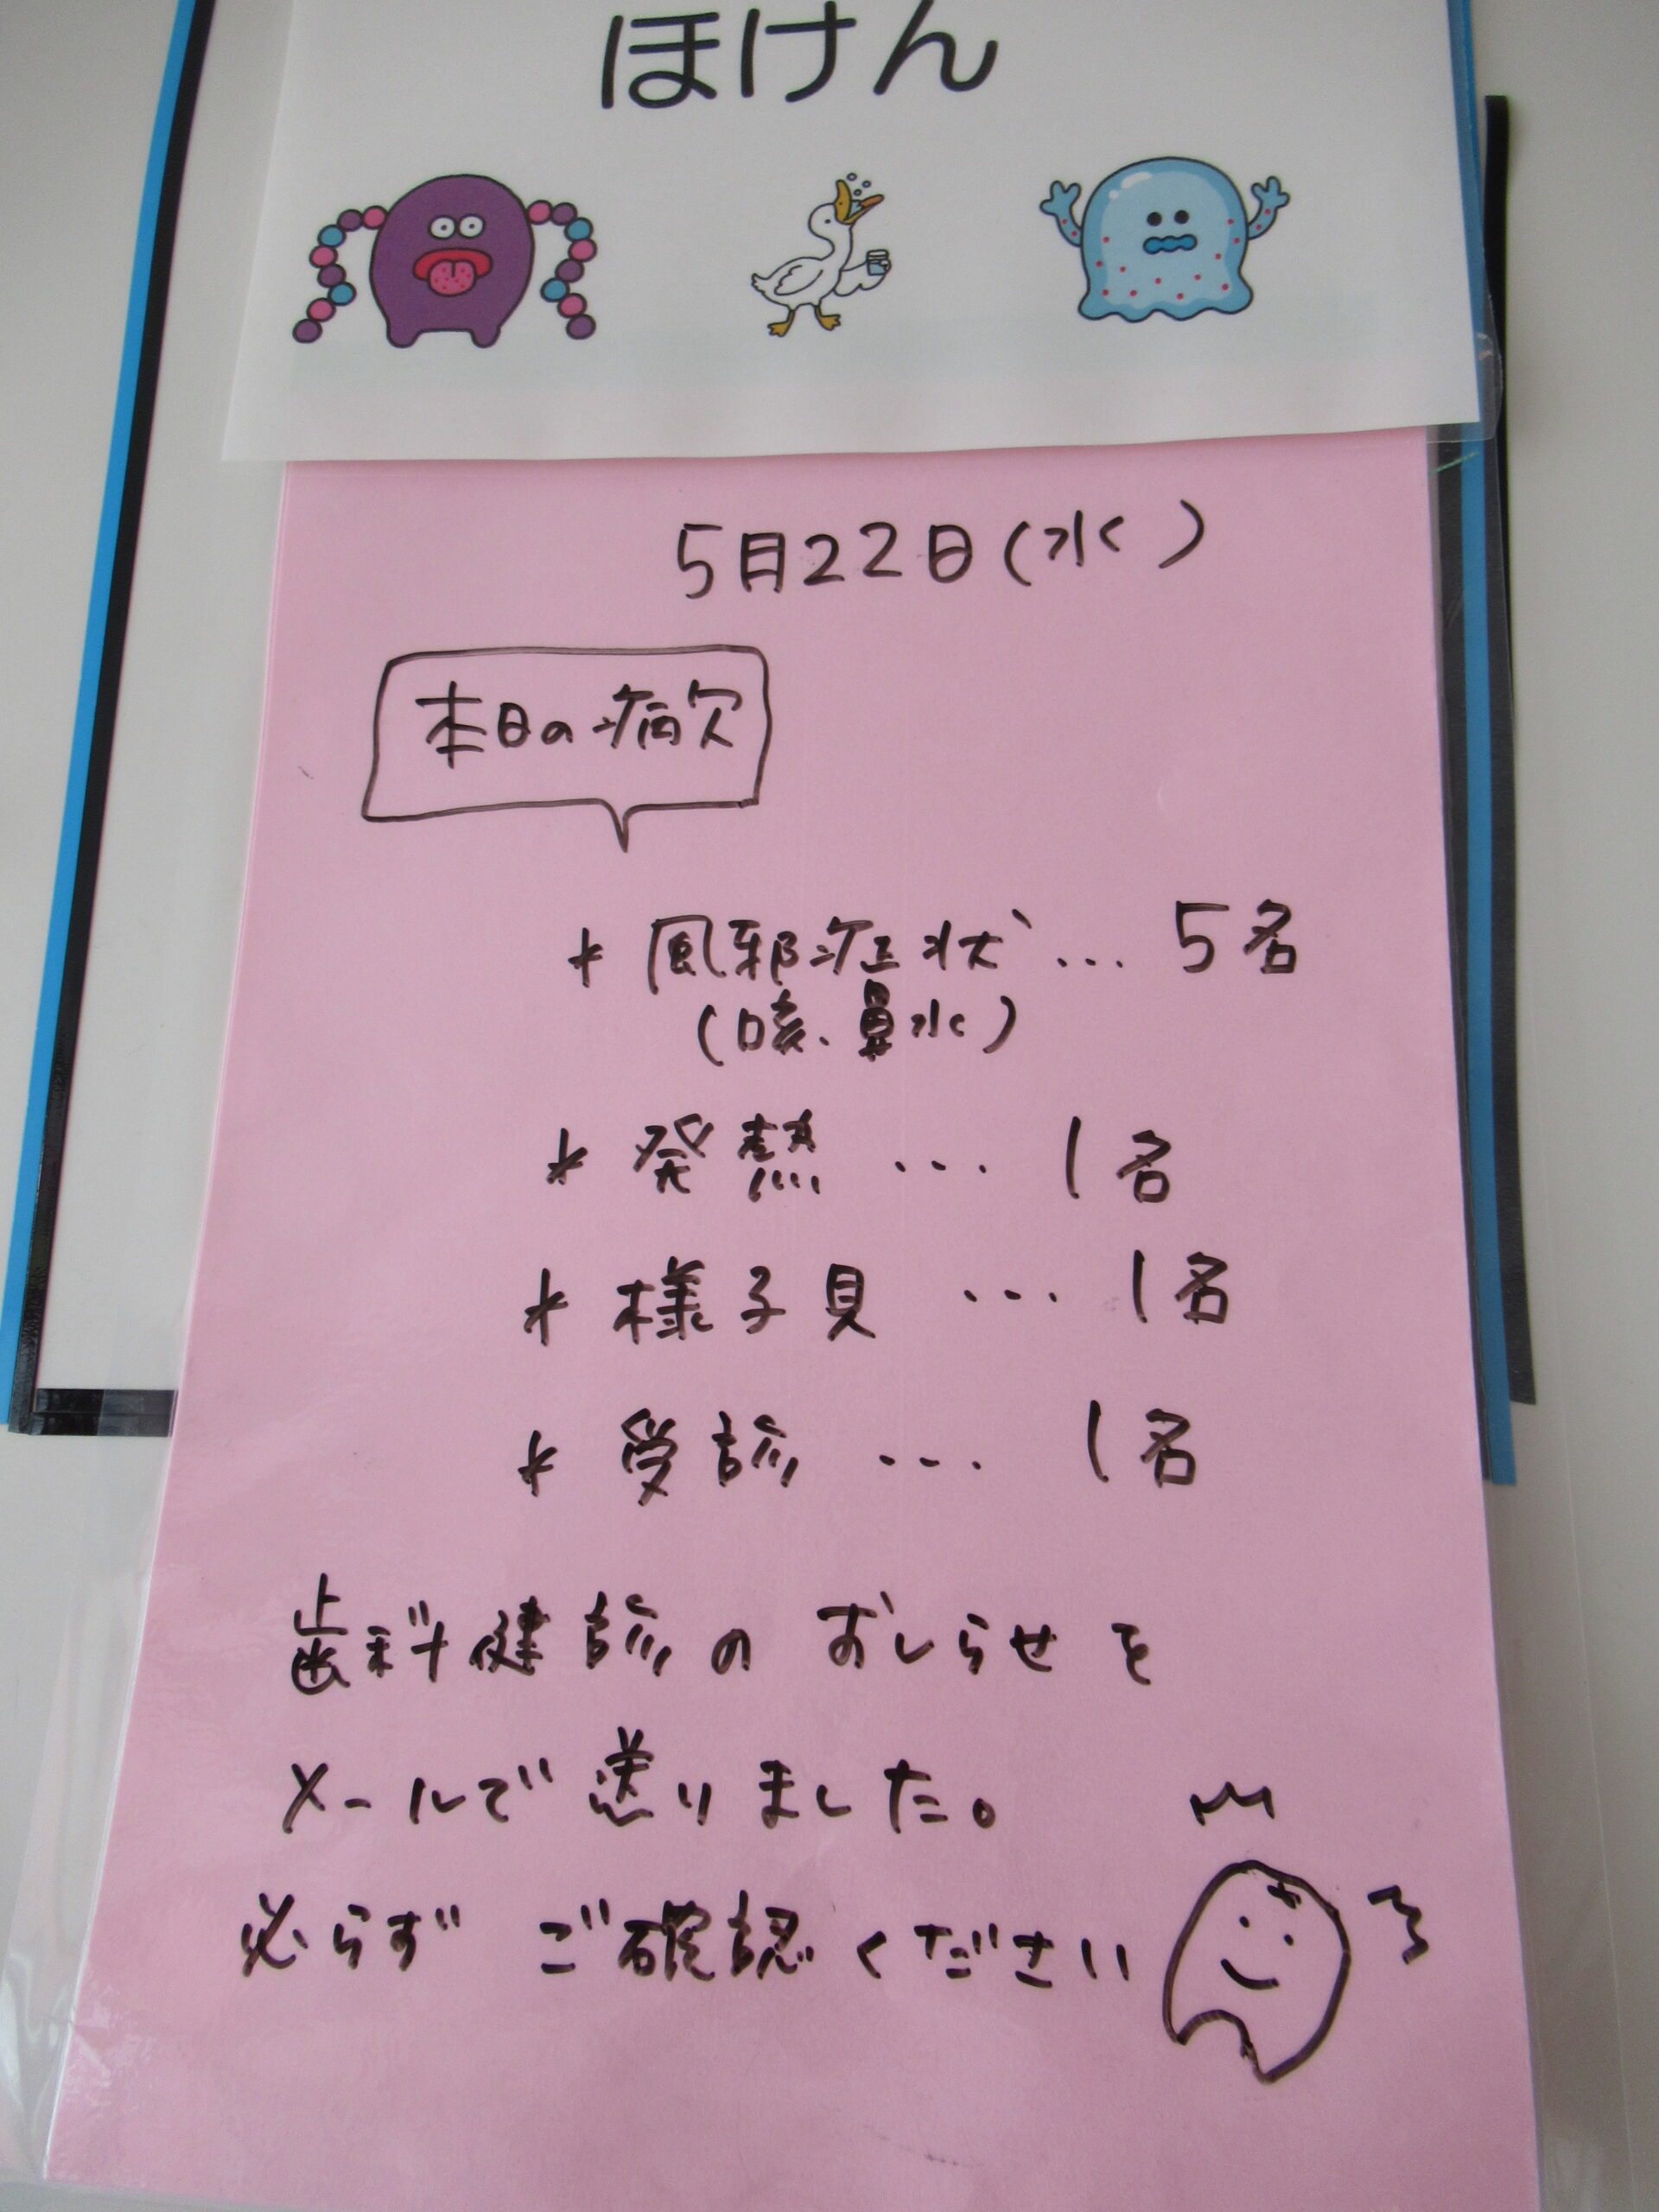 ほけん
5月22日(水)
本日の病欠
* 風邪症状 … 5名
(咳、鼻水)
* 発熱 … 1名
* 様子見 … 1名
* 受診 … 1名
歯科健診の おしらせを
メールで 送りました。
必らず ご確認ください